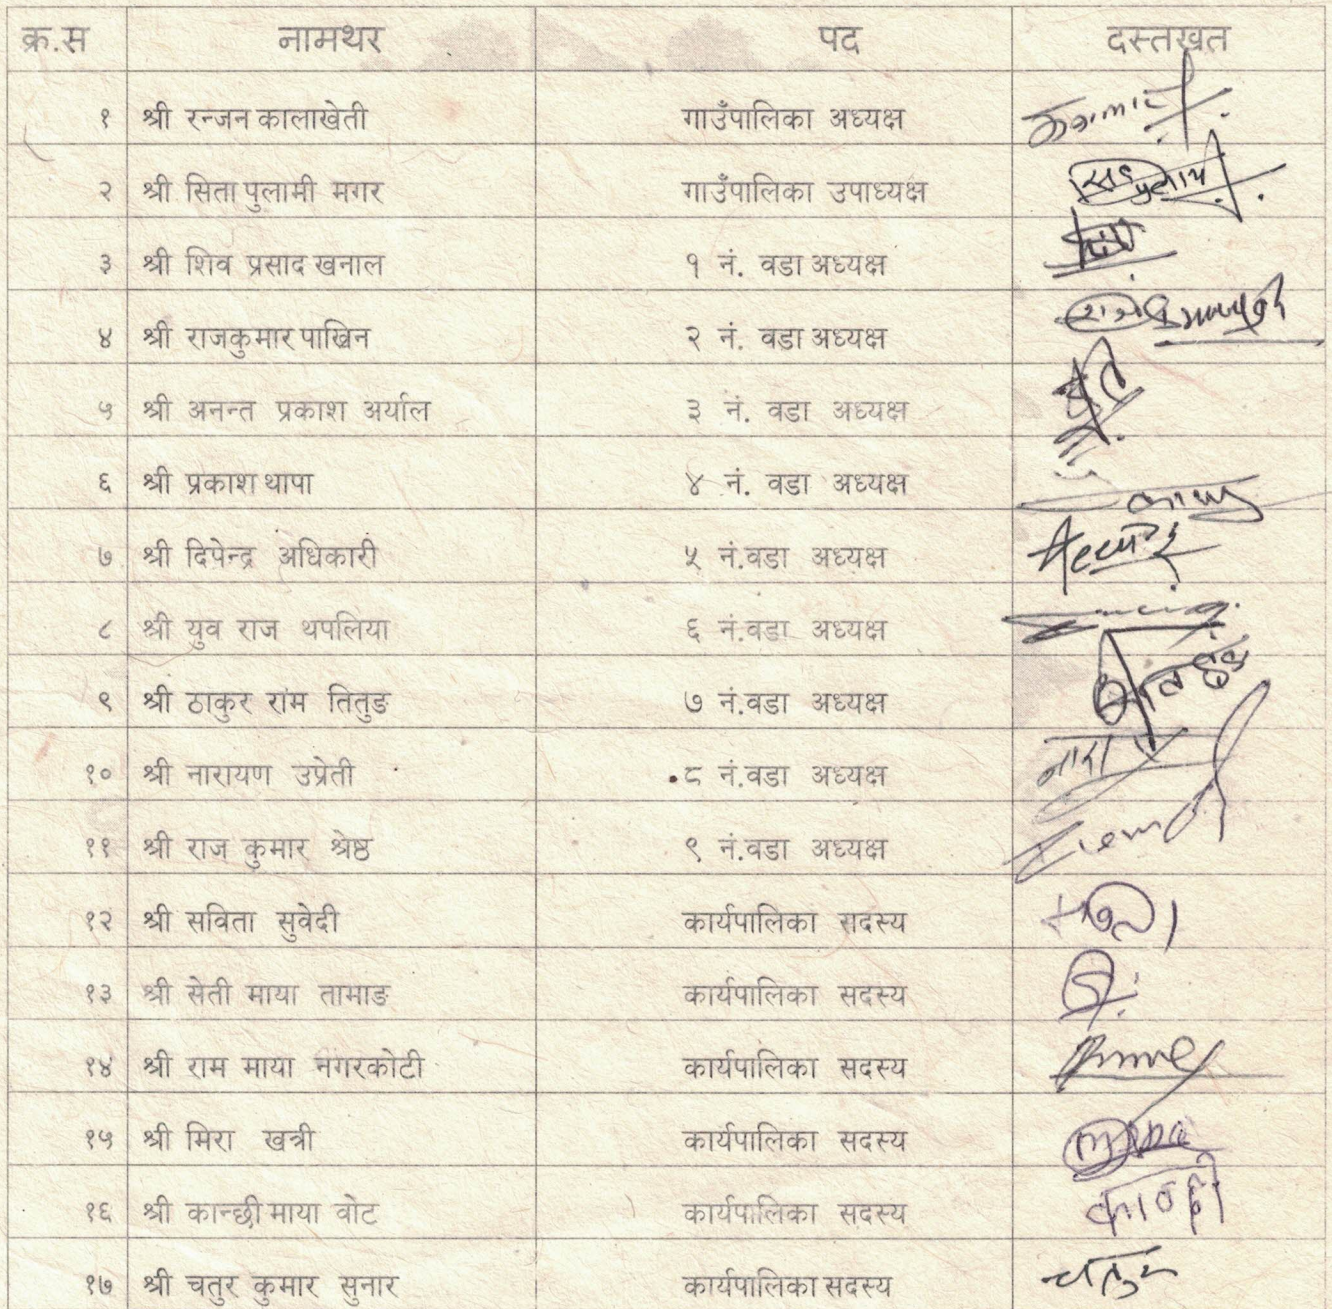 क्र.स नामथर पद दस्तखत
१ श्री रन्जन कालाखेती गाउँपालिका अध्यक्ष
२ श्री सिता पुलामी मगर गाउँपालिका उपाध्यक्ष
३ श्री शिव प्रसाद खनाल १ नं. वडा अध्यक्ष
४ श्री राजकुमार पाख्रिन २ नं. वडा अध्यक्ष
५ श्री अनन्त प्रकाश अर्याल ३ नं. वडा अध्यक्ष
६ श्री प्रकाश थापा ४ नं. वडा अध्यक्ष
७ श्री दिपेन्द्र अधिकारी ५ नं.वडा अध्यक्ष
८ श्री युव राज थपलिया ६ नं.वडा अध्यक्ष
९ श्री ठाकुर राम तितुङ ७ नं.वडा अध्यक्ष
१० श्री नारायण उप्रेती ८ नं.वडा अध्यक्ष
११ श्री राज कुमार श्रेष्ठ ९ नं.वडा अध्यक्ष
१२ श्री सविता सुवेदी कार्यपालिका सदस्य
१३ श्री सेती माया तामाङ कार्यपालिका सदस्य
१४ श्री राम माया नगरकोटी कार्यपालिका सदस्य
१५ श्री मिरा खत्री कार्यपालिका सदस्य
१६ श्री कान्छी माया वोट कार्यपालिका सदस्य
१७ श्री चतुर कुमार सुनार कार्यपालिका सदस्य